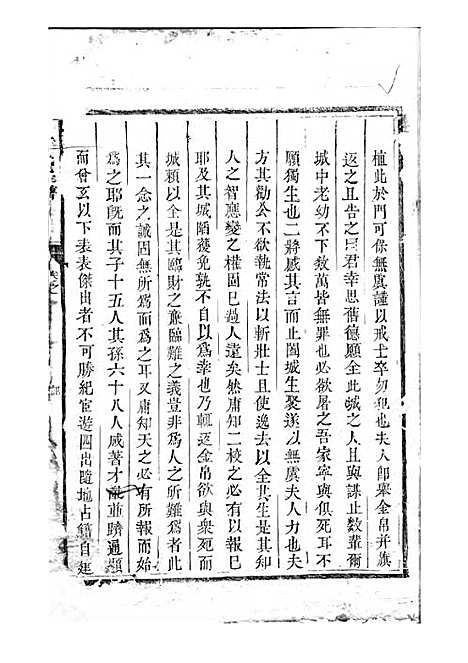 植此於門可保無虞謹以戒士卒勿犯也夫人即舉金帛并旗
返之且告之曰君幸思舊德願全此城之人且與謀止數輩爾
城中老幼不下數萬皆無罪也必欲屠之吾家寧與俱死耳不
願獨生也二將感其言而止闔城生聚遂以無虞夫人力也夫
方其勸公不欲執常法以斬壯士且使逸去以全其生是其知
人之智應變之權固已過人遠矣然庸知二校之必有以報已
耶及其城陷獲免孰不自以為幸也乃輒返金帛欲與衆死而
城賴以全是其臨財之廉臨難之義豈非為人之所難為者此
其一念之誠固無所為而為之耳又庸知天之必有所報而始
為之耶旣而其子十五人其孫六十八人咸著才並躋通顯
而曾玄以下表表傑由者不可勝紀宦遊四出隨地占籍自建